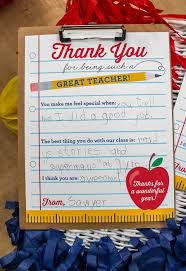 Thank You
for being such a
GREAT TEACHER!
You make me feel special when: you tell
me I did a good job.
The best thing you do with our class is: read
us stories and
I think you are: awesome!
Thanks for
a wonderful
year!
From, Sawyer